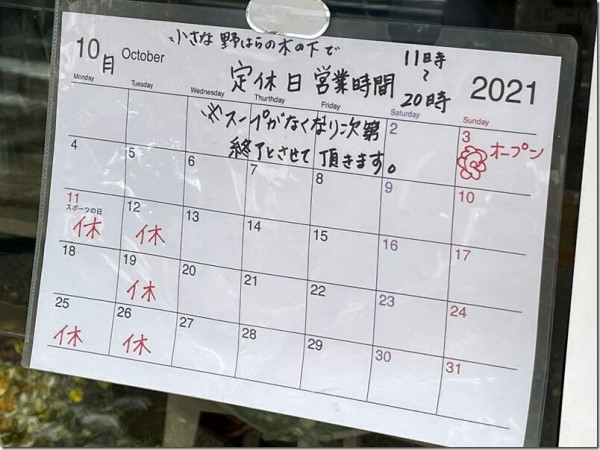 小さな野はらの木の下で
10月 October 定休日 営業時間 11時〜20時 2021
Monday Tuesday Wednesday Thurthday Friday Saturday Sunday
※スープがなくなり次第
終了とさせて頂きます。
1 2 3 オープン
4 5 6 7 8 9 10
11 スポーツの日 休 12 休 13 14 15 16 17
18 19 休 20 21 22 23 24
25 休 26 休 27 28 29 30 31